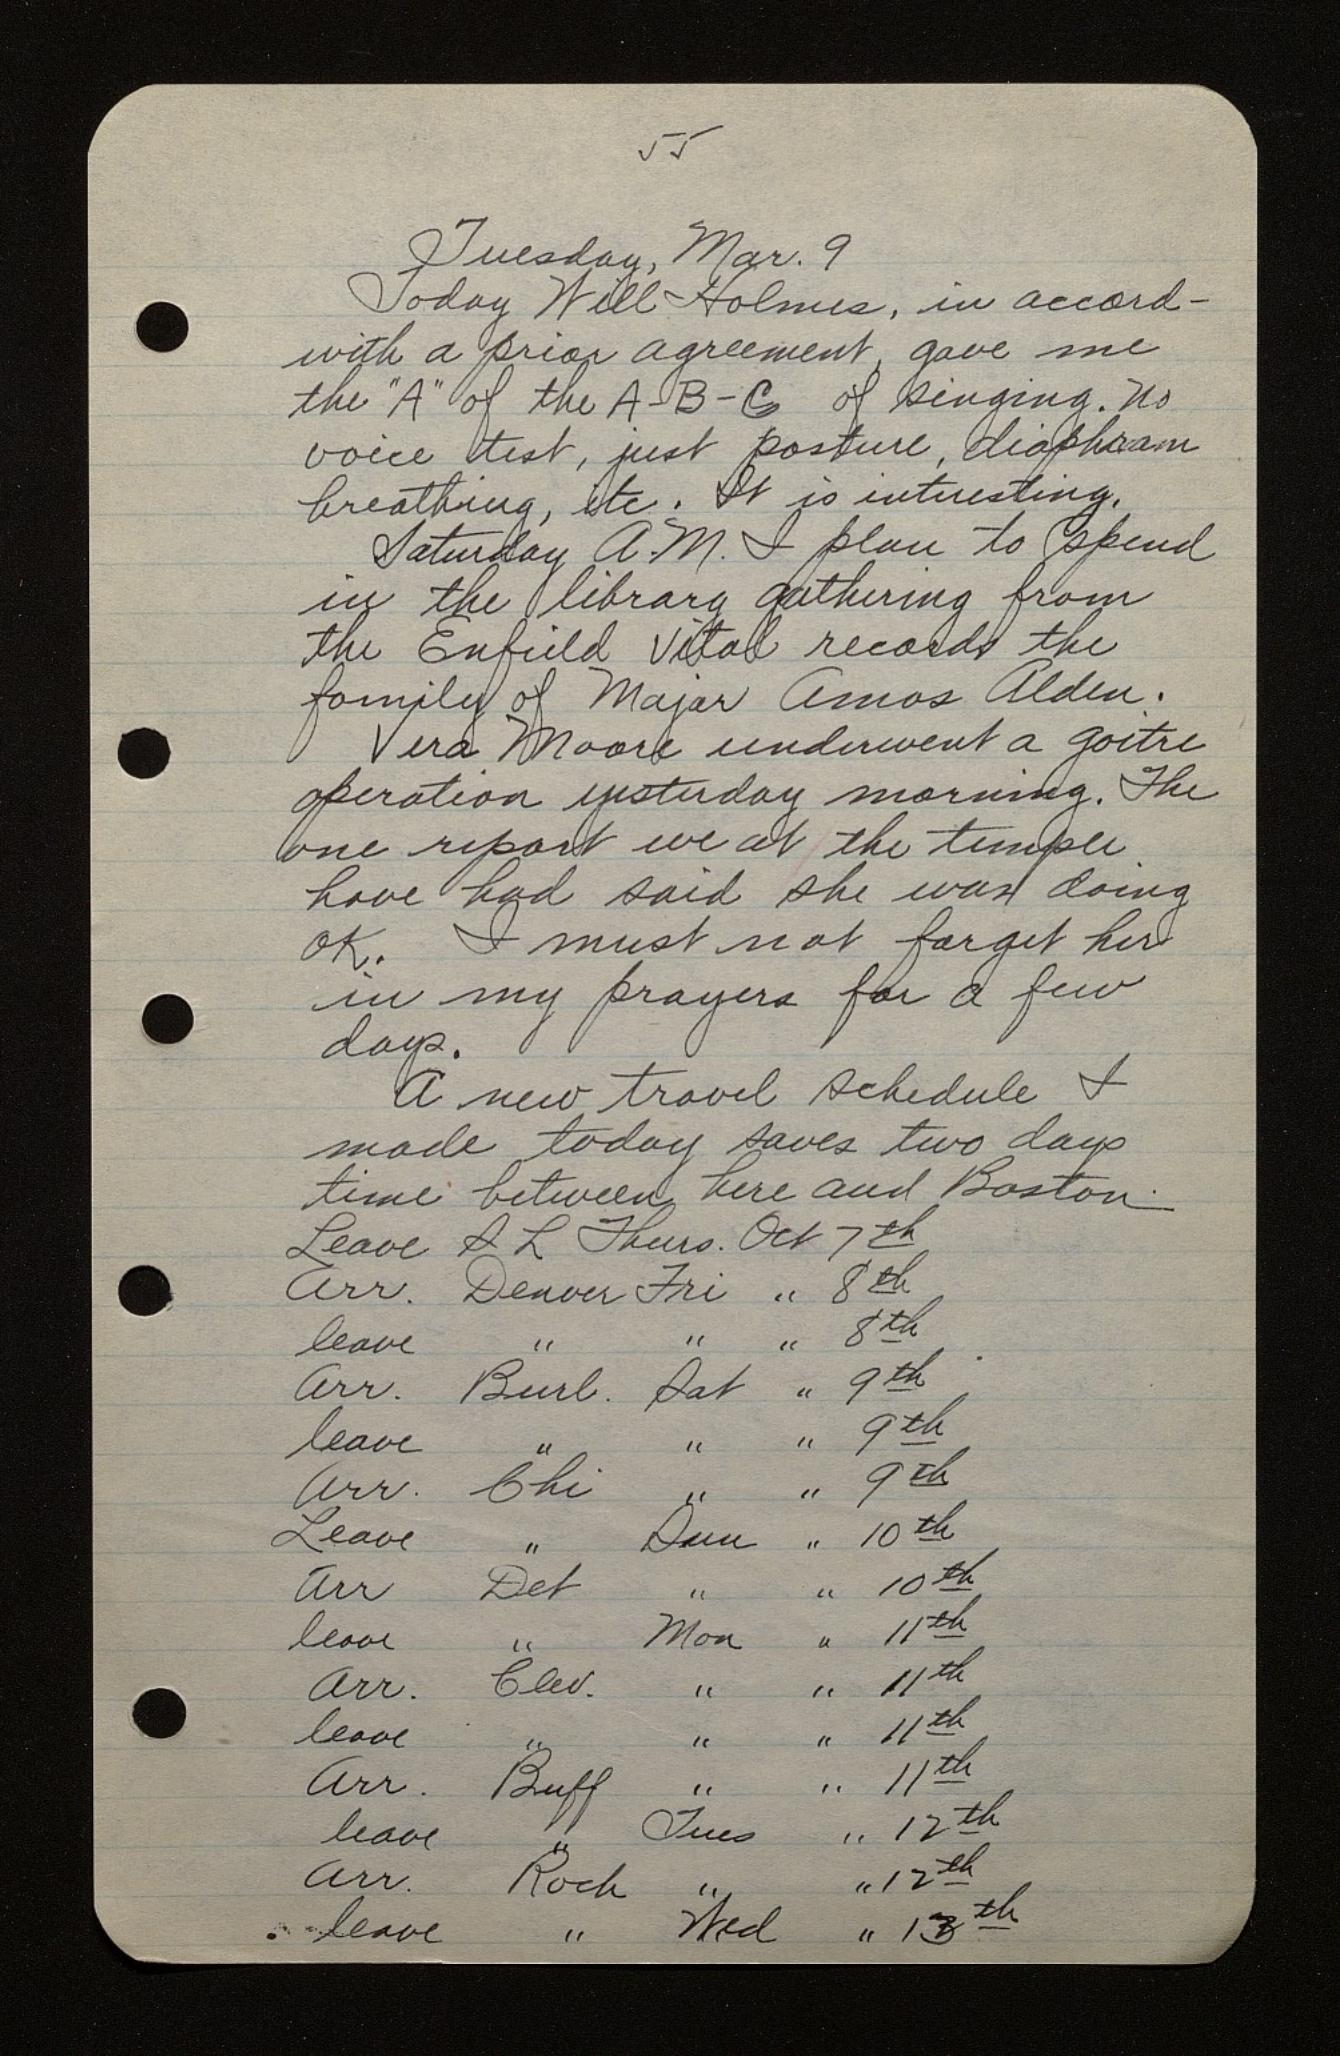 55
Tuesday, Mar. 9
Today Will Holmes, in accord-
with a prior agreement, gave me
the "A" of the A-B-C of singing. No
voice test, just posture, diaphram
breathing, etc. It is interesting.
Saturday A.M. I plan to spend
in the library gathering from
the Enfield Vital records the
family of Major Amos Alden.
Vera Moore underwent a goitre
operation yesterday morning. The
one report we at the temple
have had said she was doing
OK. I must not forget her
in my prayers for a few
days.
A new travel schedule I
made today saves two days
time between here and Boston.
Leave S L Thurs. Oct 7th
Arr. Denver Fri " 8th
leave " " " 8th
Arr. Burl. Sat " 9th
leave " " " 9th
Arr. Chi " " 9th
Leave " Sun " 10th
Arr Det " " 10th
leave " Mon " 11th
Arr. Clev. " " 11th
leave " " " 11th
Arr. Buff " " 11th
leave " Tues " 12th
Arr. Roch " " 12th
leave " Wed " 13th